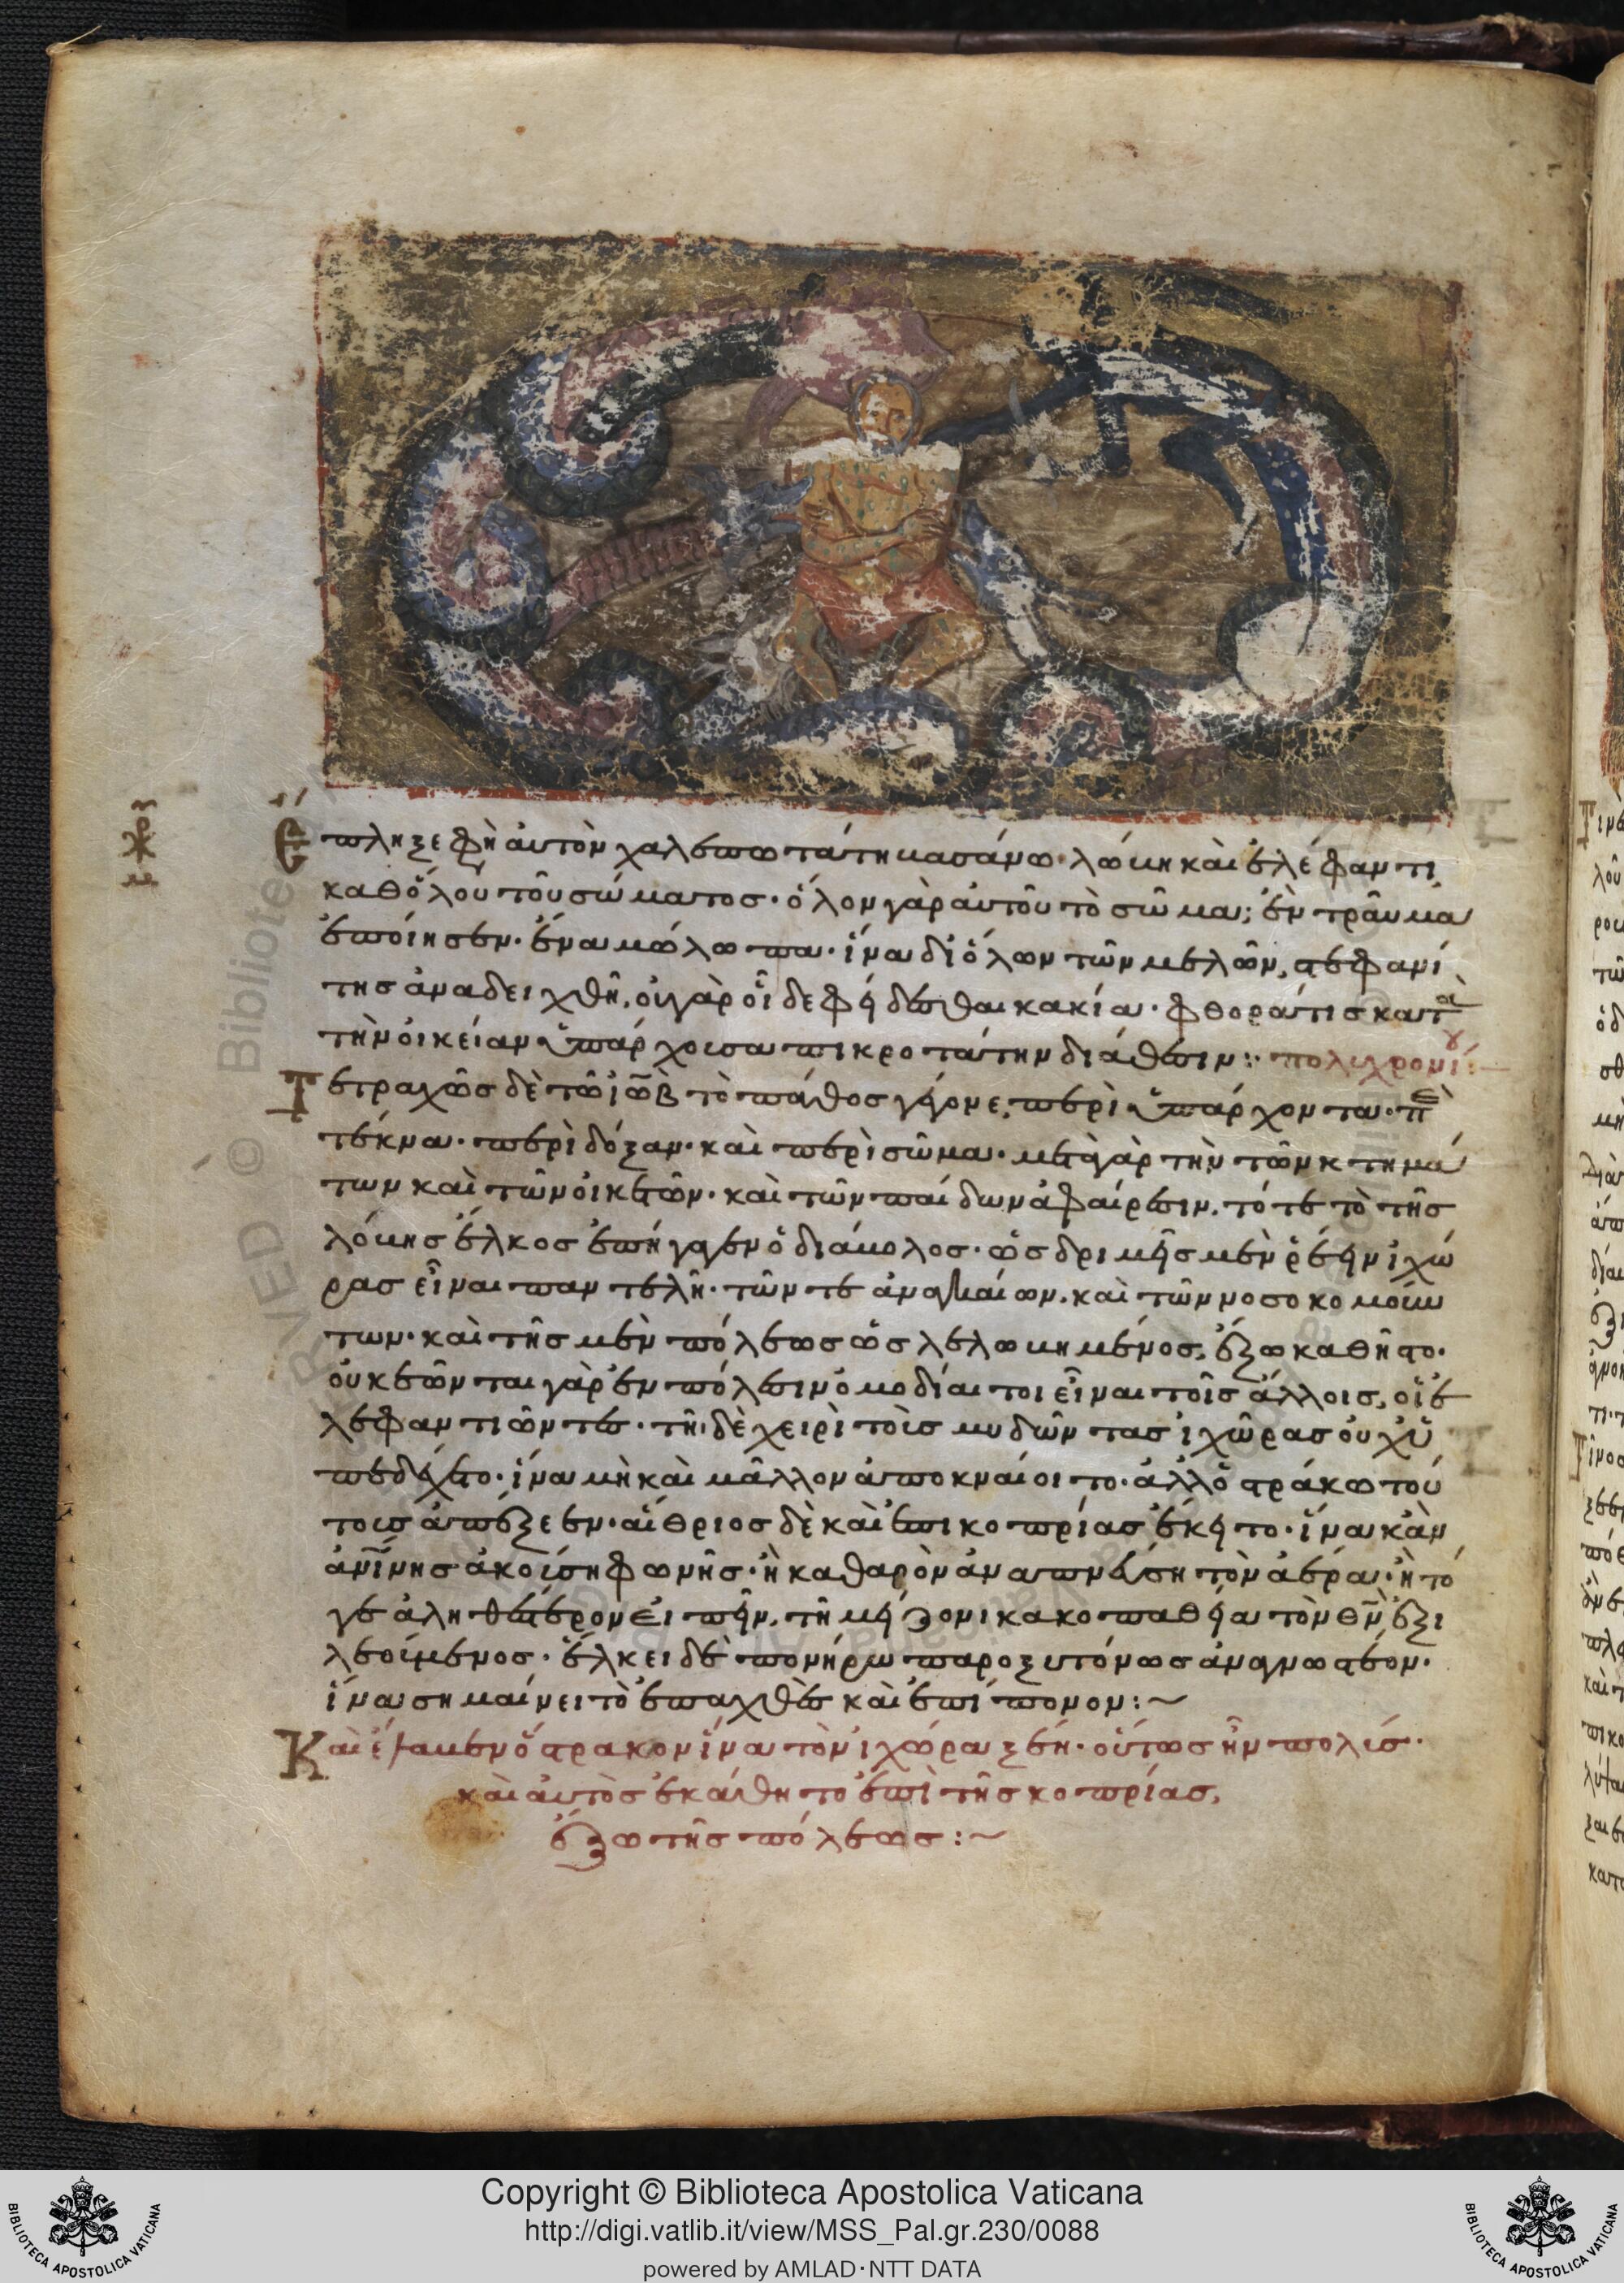 Ἔπληξε φὴ ἀυτὸν χαλεπωτάτη βασάνω· λώβη καὶ ἐλέφαντι
καθ ὅλου τοῦ σώματοσ· ὅλον γὰρ ἀυτοῦ τὸ σῶμα; ἐν τραῦμα
ἐποίησεν· ἕνα μώλωπα· ἵνα δι ὅλων τῶν μελῶν, στεφανί
τησ ἀναδειχθῆ,
τὴν οἰκείαν ὑπάρχουσα πικροτάτην διάθεσιν: πολυχρονί:
Τετραχῶς δὲ τῶ ἰὼβ τὸ πάθοσ γέγονε, περὶ ὑπάρχοντα· πὲ
τέκνα· περὶ δόξαν· καὶ περὶ σῶμα· μετὰ γὰρ τὴν τῶν κτημά
των καὶ τῶν οἰκετῶν· καὶ τῶν παίδων ἀφαίρεσιν, τότε τὸ τῆσ
λόβησ ἕλκοσ ἐπήγαγεν ὁ διάβολοσ· ὡς δριμεῖς μὲν ῥέειν ἰχώ
ρασ
των· καὶ τῆσ μὲν πόλεωσ ὡς λελωβημένοσ, ἔξω καθῆστο·
ὀυκ ἐῶνται γὰρ ἐν πόλεσιν ὁμοδίαιτοι εἶναι τοῖσ ἄλλοισ, οἱ ἐ
λεφαντιῶντεσ· τῆ δὲ χειρὶ τοὺσ μυδῶντασ ἰχῶρασ ὀυχ ὑ
πεδέχετο· ἵνα μὴ καὶ μᾶλλον ἀποκναίοιτο· ἀλλ ὀστράκω τού
τουσ ἀπέξεεν· αἴθριοσ δὲ καὶ ἐπὶ κοπρίασ ἔκειτο· ἵνα κὰν
φωνῆσ· ἢ καθαρὸν ἀναπνεύση τὸν ἀέρα· ἢ τό
γε ἀληθέστερον εἰπεῖν, τῆ μείζονι κακοπαθεία τὸν θν ἐξι
λεούμενοσ· ἕλκει δὲ πονηρῶ παροξυτόνωσ ἀναγνωστέον·
ἵνα σημαίνει τὸ ἐπαχθὲς καὶ ἐπίπονον:~
Καὶ ἔλαβεν ὄστρακον ἵνα τὸν ἰχώρα ξέη· οὕτωσ ἦν πολύσ·
καὶ ἀυτὸσ ἐκάθητο ἐπὶ τῆσ κοπρίασ,
ἔξω τῆσ πόλεωσ:~
Copyright © Biblioteca Apostolica Vaticana
http://digi.vatlib.it/view/MSS_Pal.gr.230/0088
powered by AMLAD·NTT DATA
BIBLIOTECA APOSTOLICA VATICANA
BIBLIOTECA APOSTOLICA VATICANA